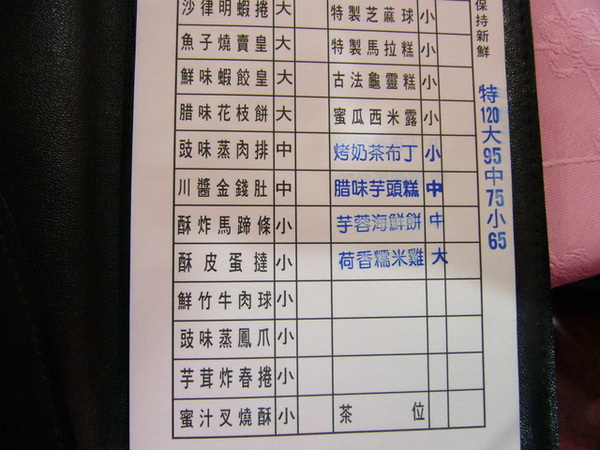 沙律明蝦捲 大 特製芝蔴球 小
魚子燒賣皇 大 特製馬拉糕 小
鮮味蝦餃皇 大 古法龜靈糕 小
腊味花枝餅 大 蜜瓜西米露 小
豉味蒸肉排 中 烤奶茶布丁 小
川醬金錢肚 中 腊味芋頭糕 中
酥炸馬蹄條 小 芋蓉海鮮餅 中
酥皮蛋撻 小 荷香糯米雞 大
鮮竹牛肉球 小
豉味蒸鳳爪 小
芋茸炸春捲 小
蜜汁叉燒酥 小 茶位
保持新鮮
特120大95中75小65